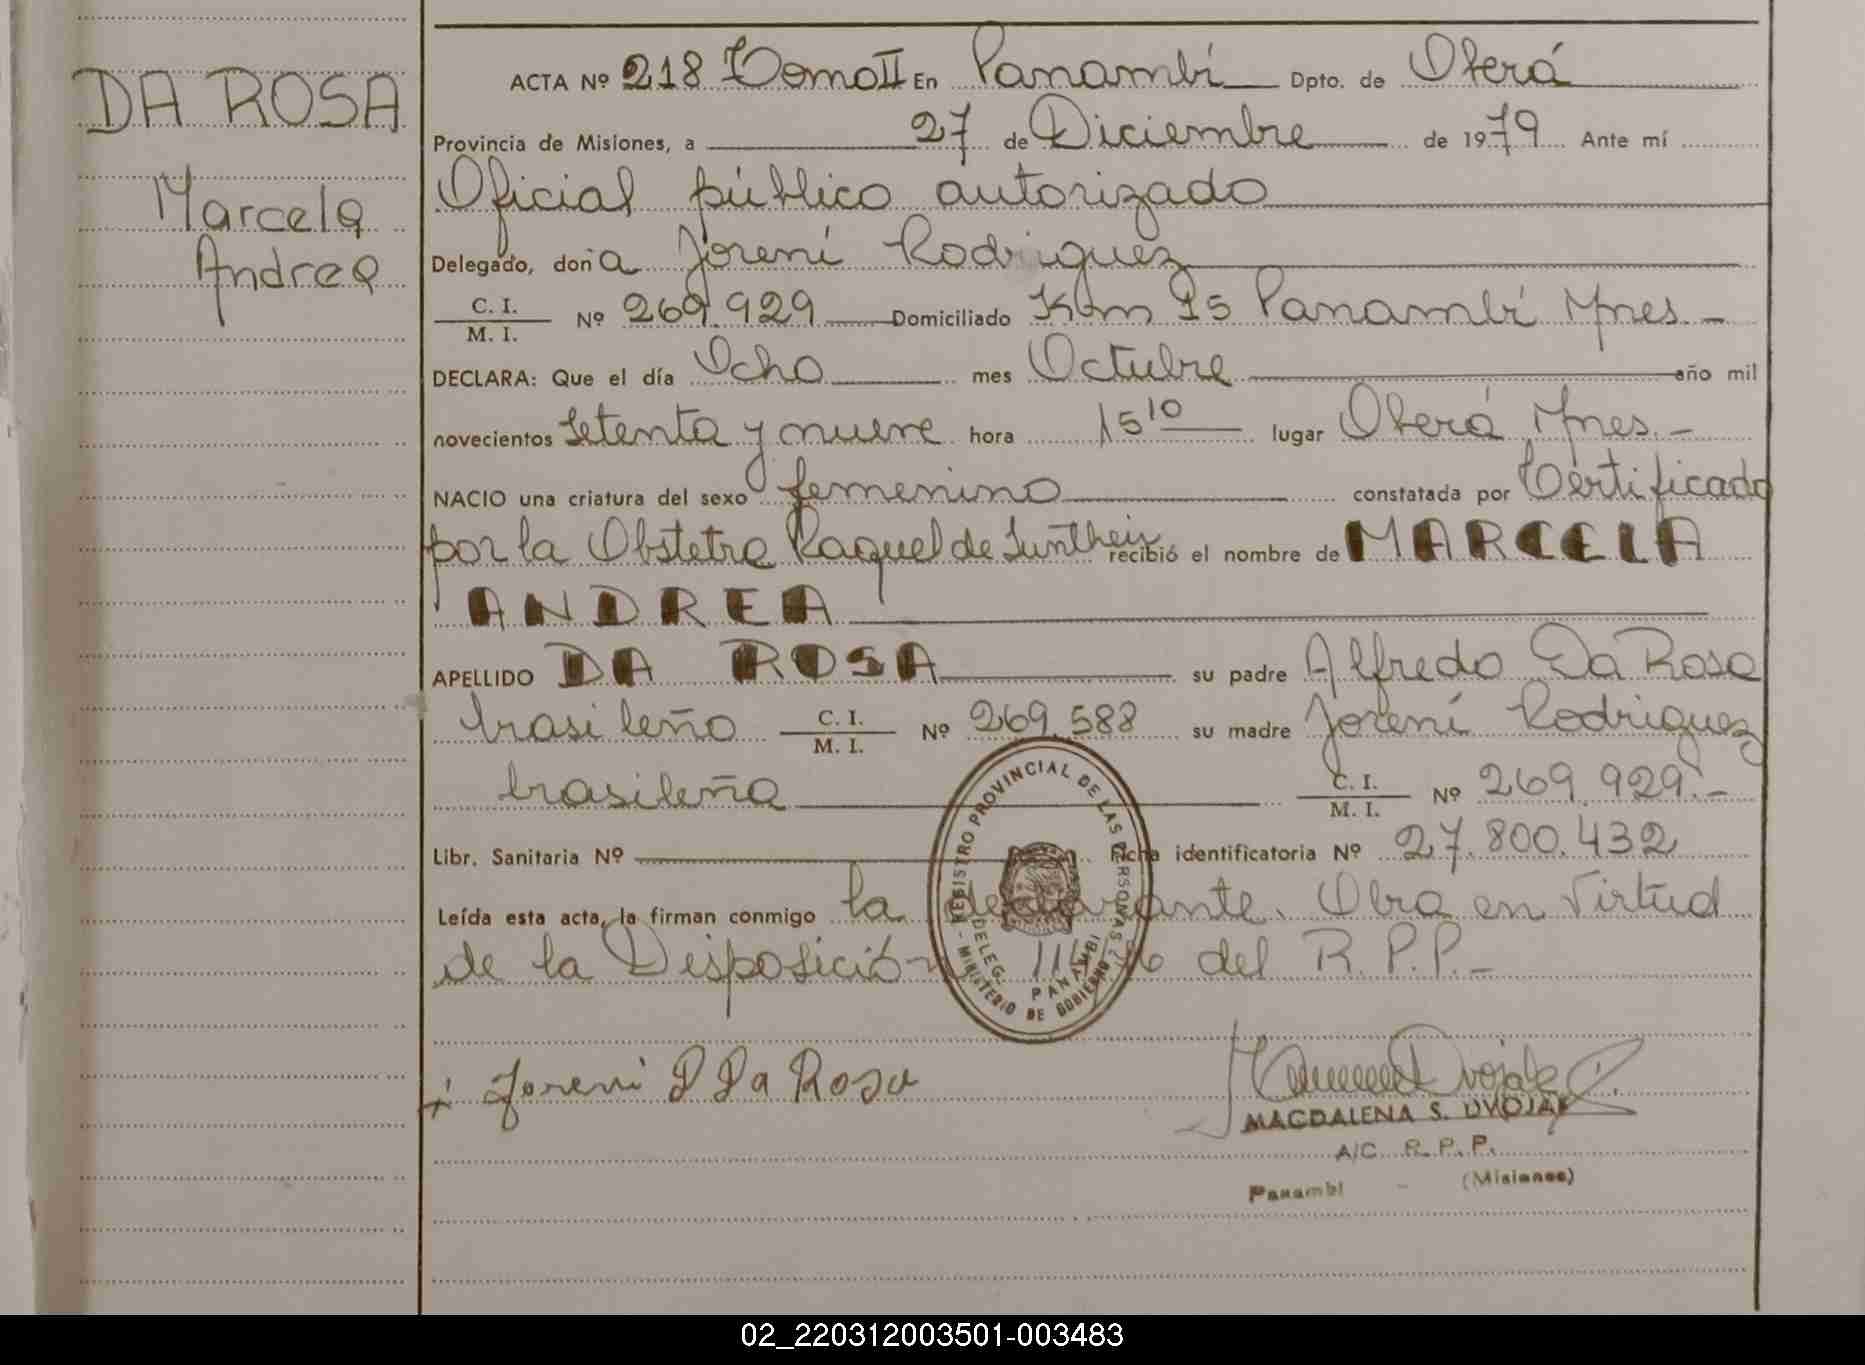 DA ROSA
Marcela
Andrea
ACTA Nº 218 Tomo II En Panambí Dpto. de Oberá
Provincia de Misiones, a 27 de Diciembre de 1979 Ante mí
Oficial público autorizado
Delegado, don a Joreni Rodriguez
C. I.
M. I. Nº 269.929 Domiciliado Km 15 Panambí Mnes. -
DECLARA: Que el día Ocho mes Octubre año mil
novecientos setenta y nueve hora 15 10 lugar Oberá Mnes. -
NACIO una criatura del sexo femenino constatada por Certificado
por la Obstetra Raquel de recibió el nombre de MARCELA
ANDREA
APELLIDO DA ROSA su padre Alfredo Da Rosa
brasileño C. I. M. I. Nº 269.588 su madre Joreni Rodriguez
brasileña C. I. M. I. Nº 269.929.-
Libr. Sanitaria Nº Ficha identificatoria Nº 27.800.432
Leída esta acta, la firman conmigo la declarante. Obra en virtud
de la Disposición del R. P. P. -
REGISTRO PROVINCIAL DE LAS PERSONAS
DELEG. PANAMBI
- MINISTERIO DE GOBIERNO
x Joreni Da Rosa
MAGDALENA S. DVOJAK
A/C R. P. P.
Panambi - (Misiones)
02_220312003501-003483